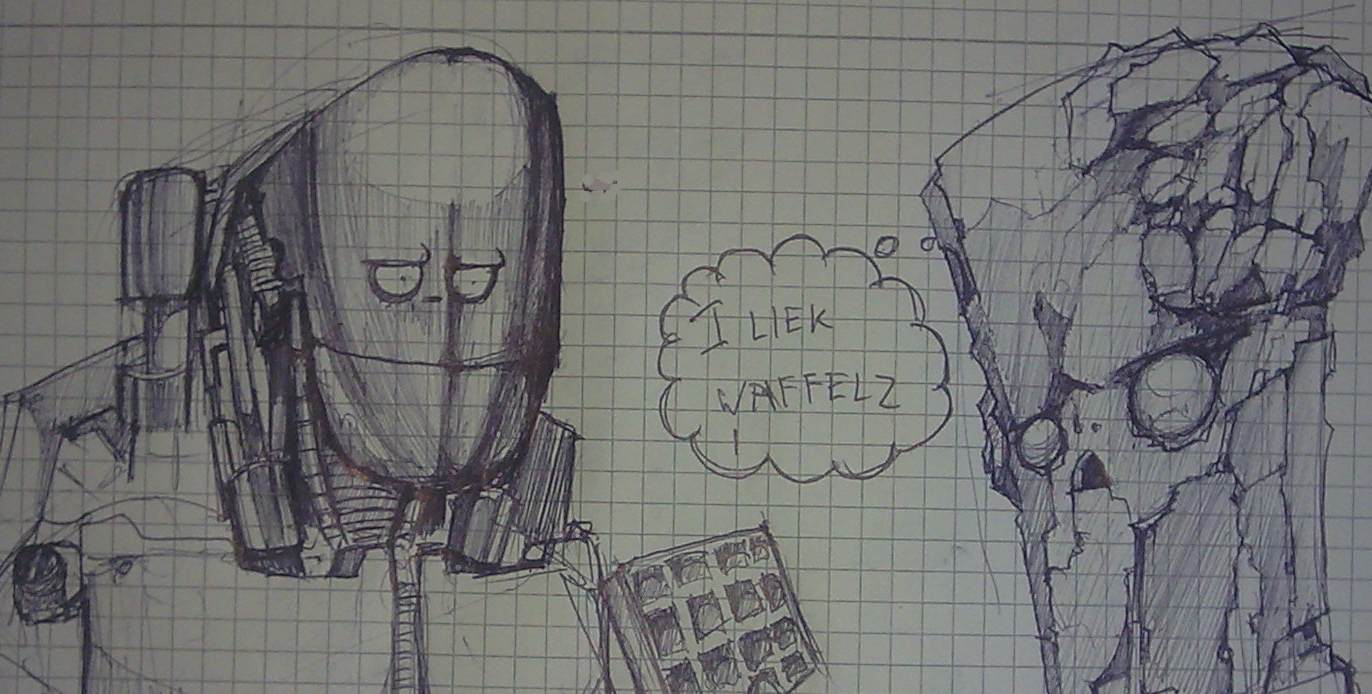 I LIEK
WAFFELZ